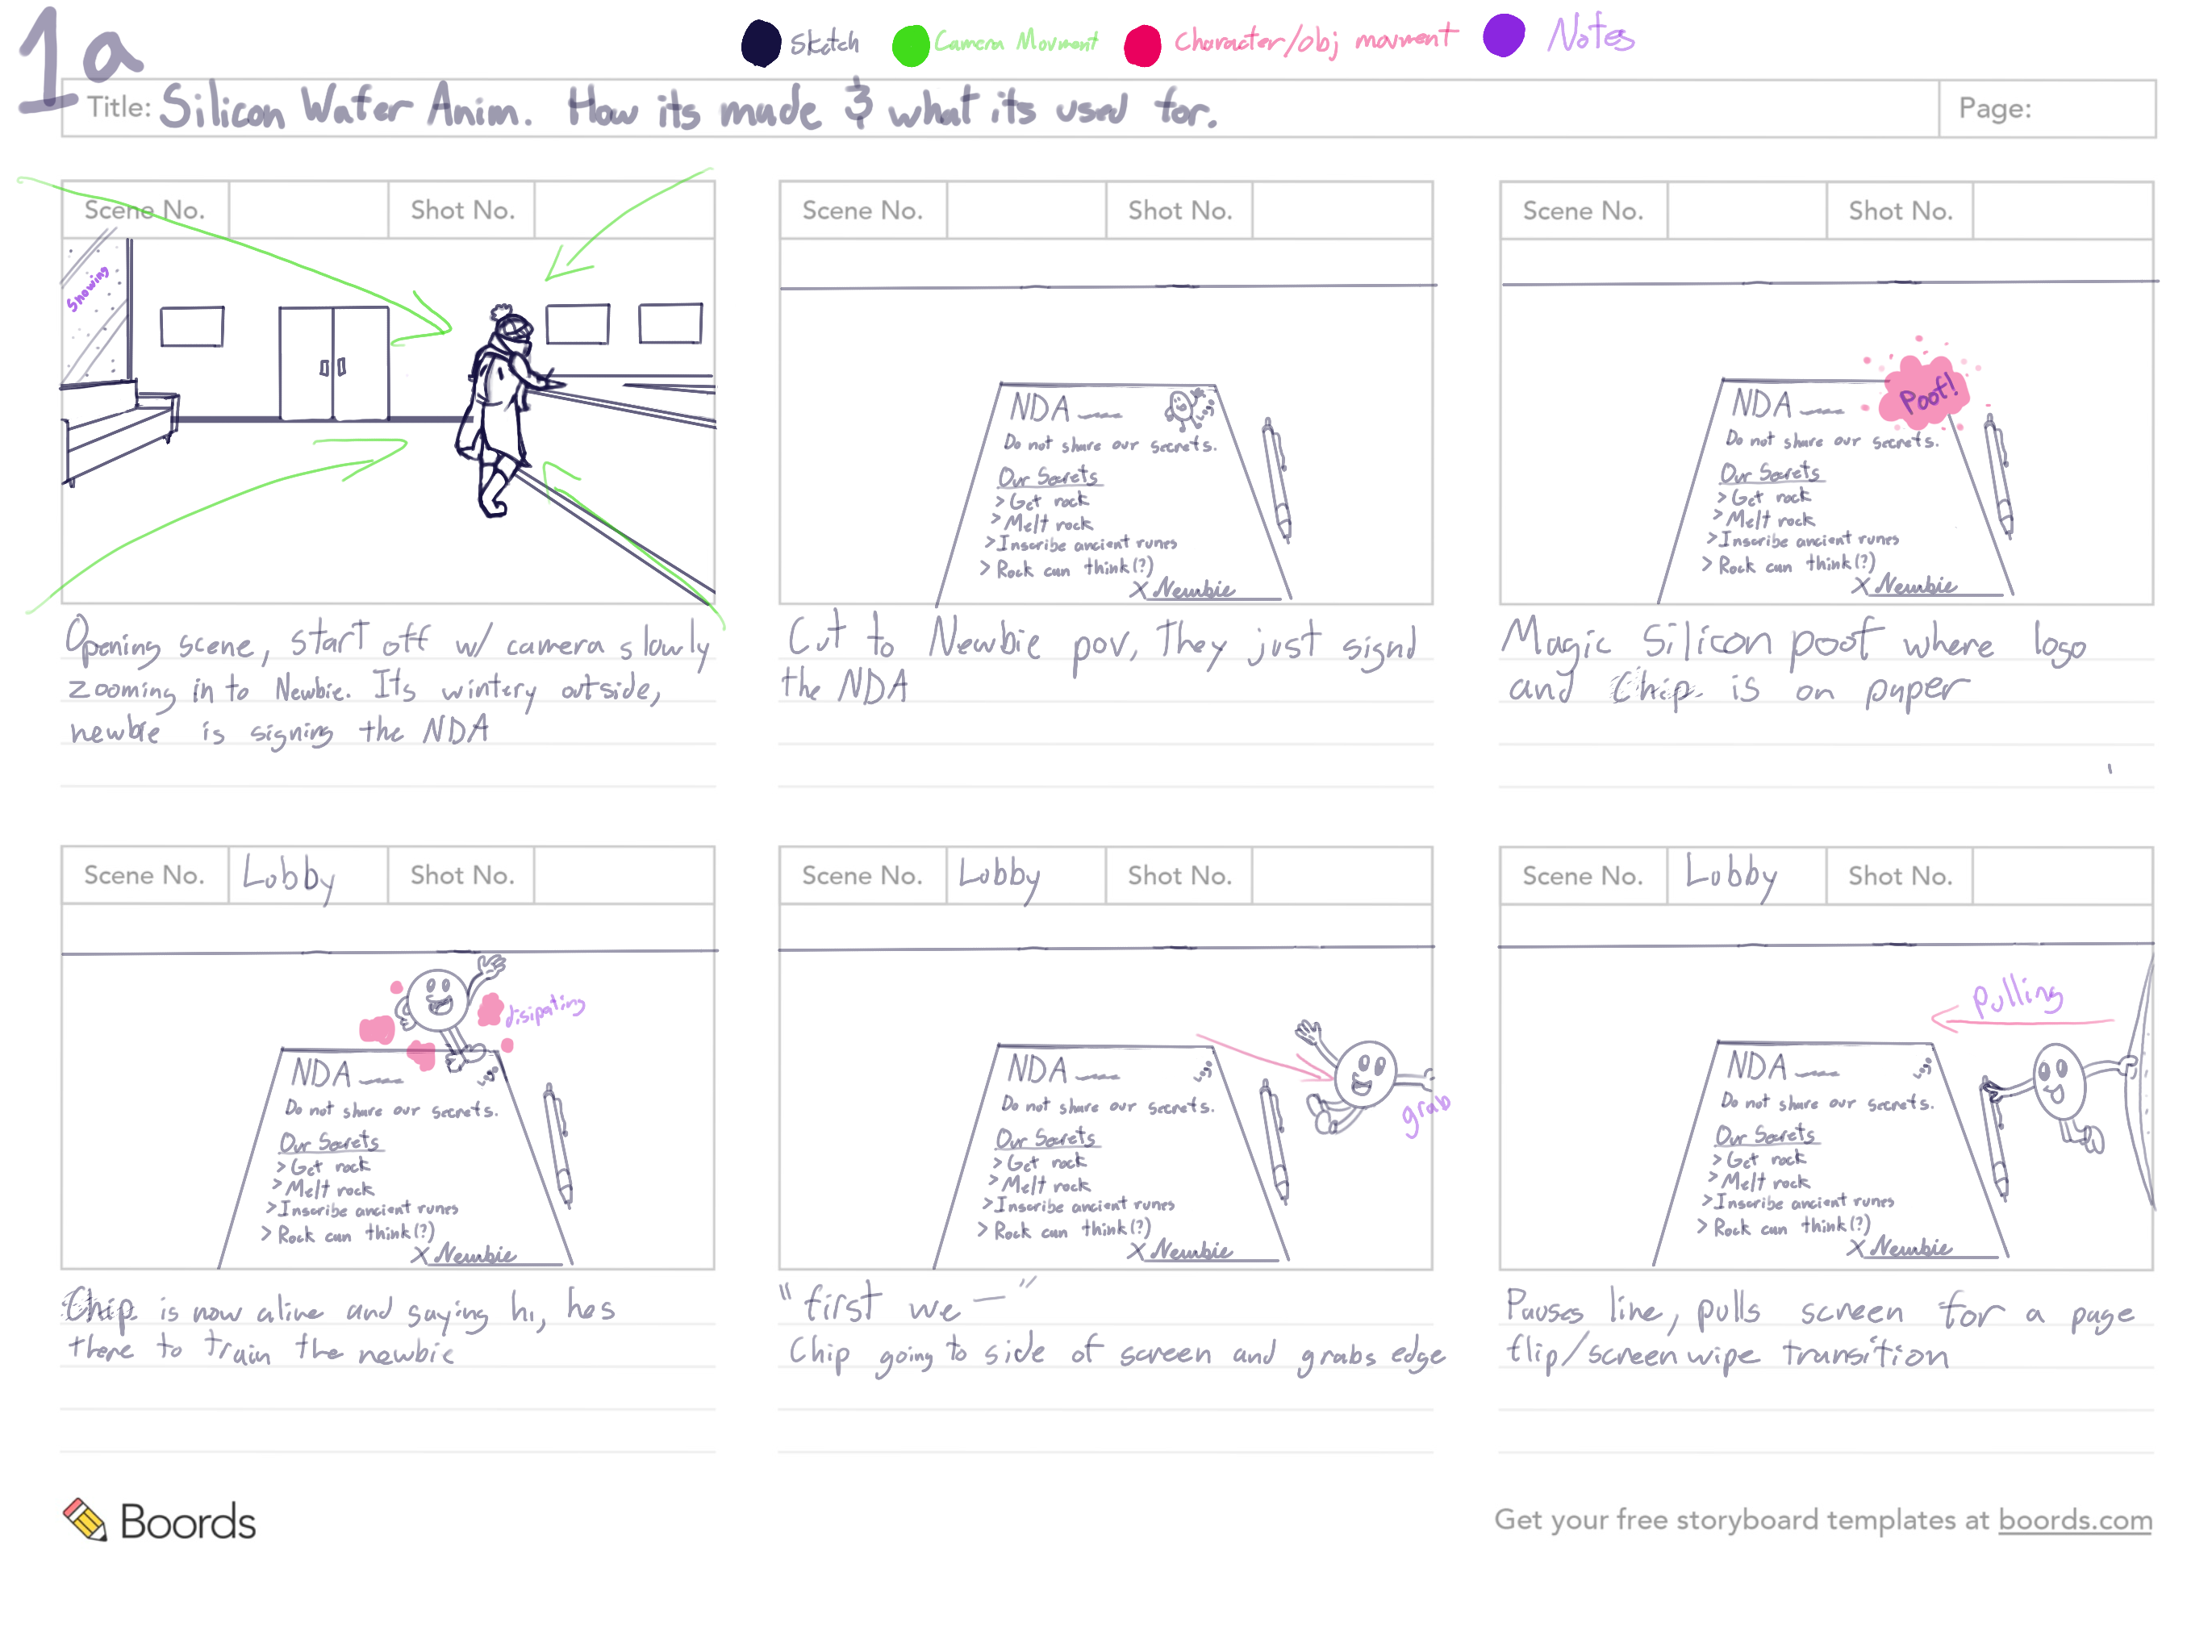 1a
Sketch Camera Movment Character/obj movment Notes
Title: Silicon Wafer Anim. How its made & what its used for. Page:
Scene No. Shot No.
Snowing
Opening scene, start off w/ camera slowly
zooming in to Newbie. Its wintery outside,
newbie is signing the NDA
Scene No. Shot No.
NDA
Logo
Do not share our secrets.
Our Secrets
> Get rock
> Melt rock
> Inscribe ancient runes
> Rock can think(?)
X Newbie
Cut to Newbie pov, They just signd
the NDA
Scene No. Shot No.
Poof!
NDA
Do not share our secrets.
Our Secrets
> Get rock
> Melt rock
> Inscribe ancient runes
> Rock can think(?)
X Newbie
Magic Silicon poof where logo
and Chip is on paper
Scene No. Lobby Shot No.
disipating
NDA
Logo
Do not share our secrets.
Our Secrets
> Get rock
> Melt rock
> Inscribe ancient runes
> Rock can think(?)
X Newbie
Chip is now alive and saying hi, hes
there to train the newbie
Scene No. Lobby Shot No.
NDA
Logo
grab
Do not share our secrets.
Our Secrets
> Get rock
> Melt rock
> Inscribe ancient runes
> Rock can think(?)
X Newbie
"first we —"
Chip going to side of screen and grabs edge
Scene No. Lobby Shot No.
Pulling
NDA
Logo
Do not share our secrets.
Our Secrets
> Get rock
> Melt rock
> Inscribe ancient runes
> Rock can think(?)
X Newbie
Pauses line, pulls screen for a page
flip/screen wipe transition
Boords
Get your free storyboard templates at boords.com